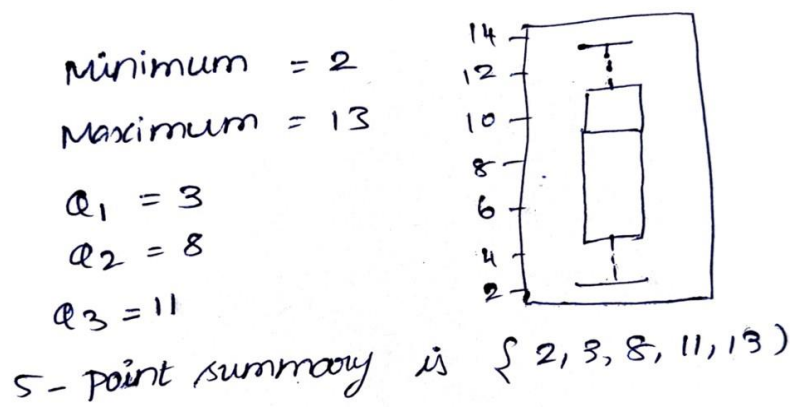 Minimum = 2
Maximum = 13
Q1 = 3
Q2 = 8
Q3 = 11
14
12
10
8
6
4
2
5 - point summary is { 2, 3, 8, 11, 13 )